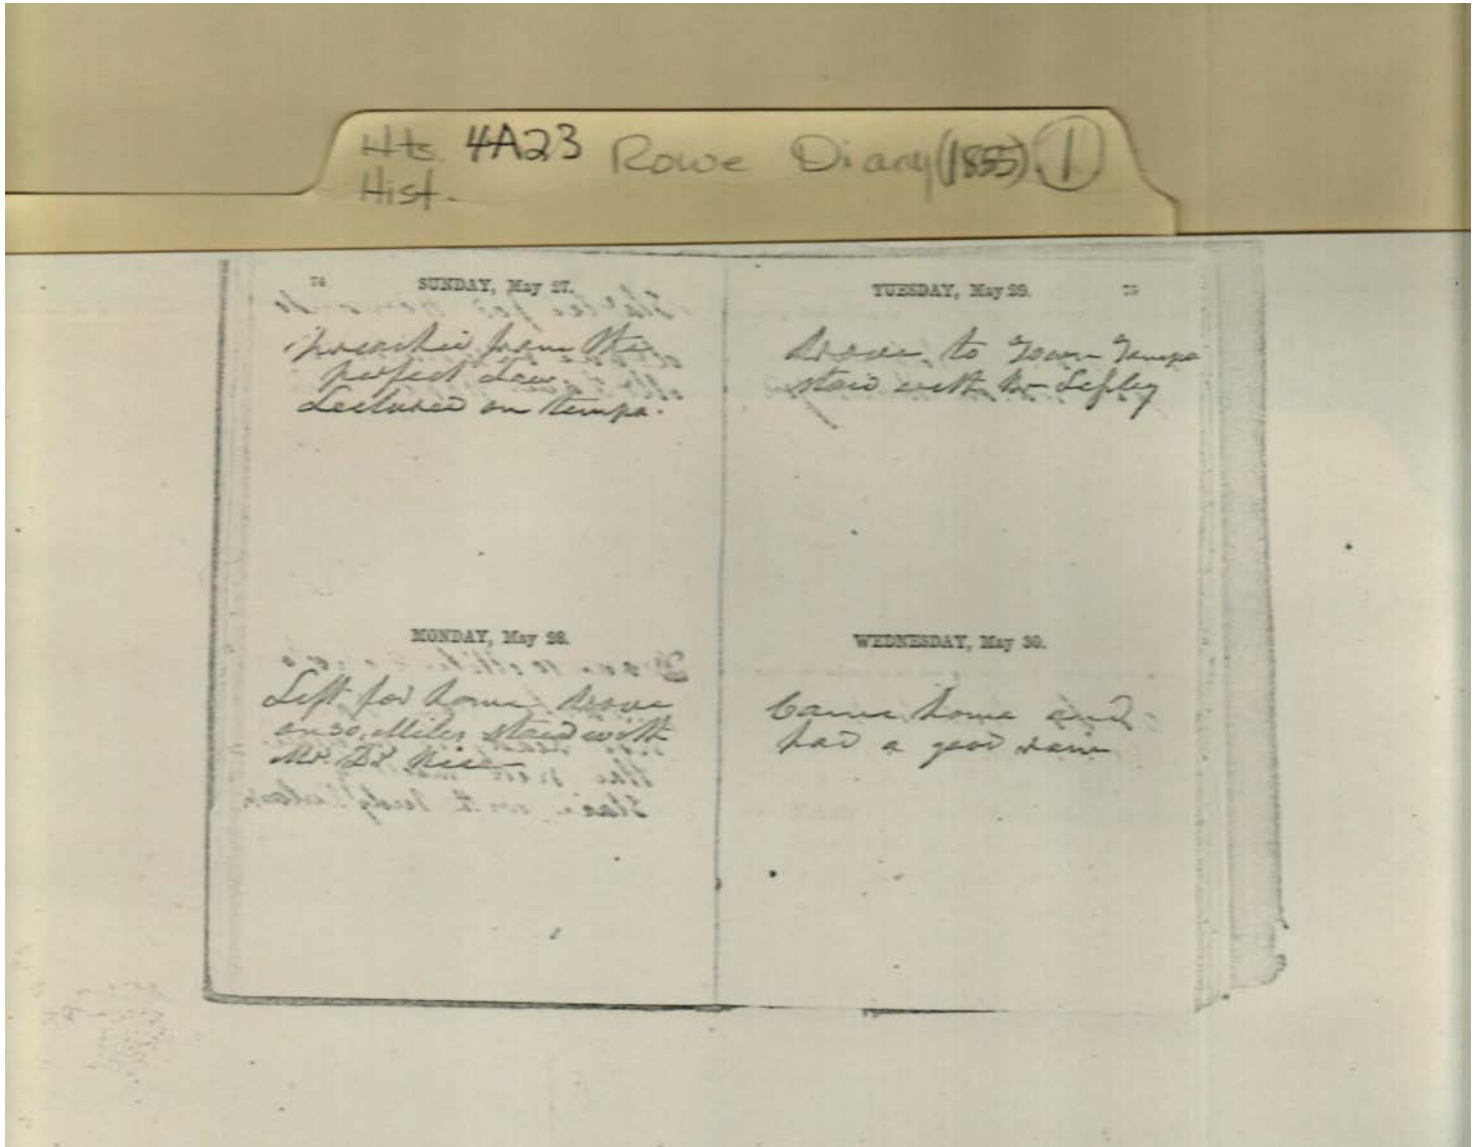 Hts. 4A23 Rowe Diary (1855) 1
Hist.
74
SUNDAY, May 27.
preached from the
perfect Law
Lectured on tempa.
MONDAY, May 28.
Left for home drove
on 30 Miles staid with
Mr. Rice
TUESDAY, May 29. 75
drove to Town
staid with
WEDNESDAY, May 30.
Came home and
had a good rain